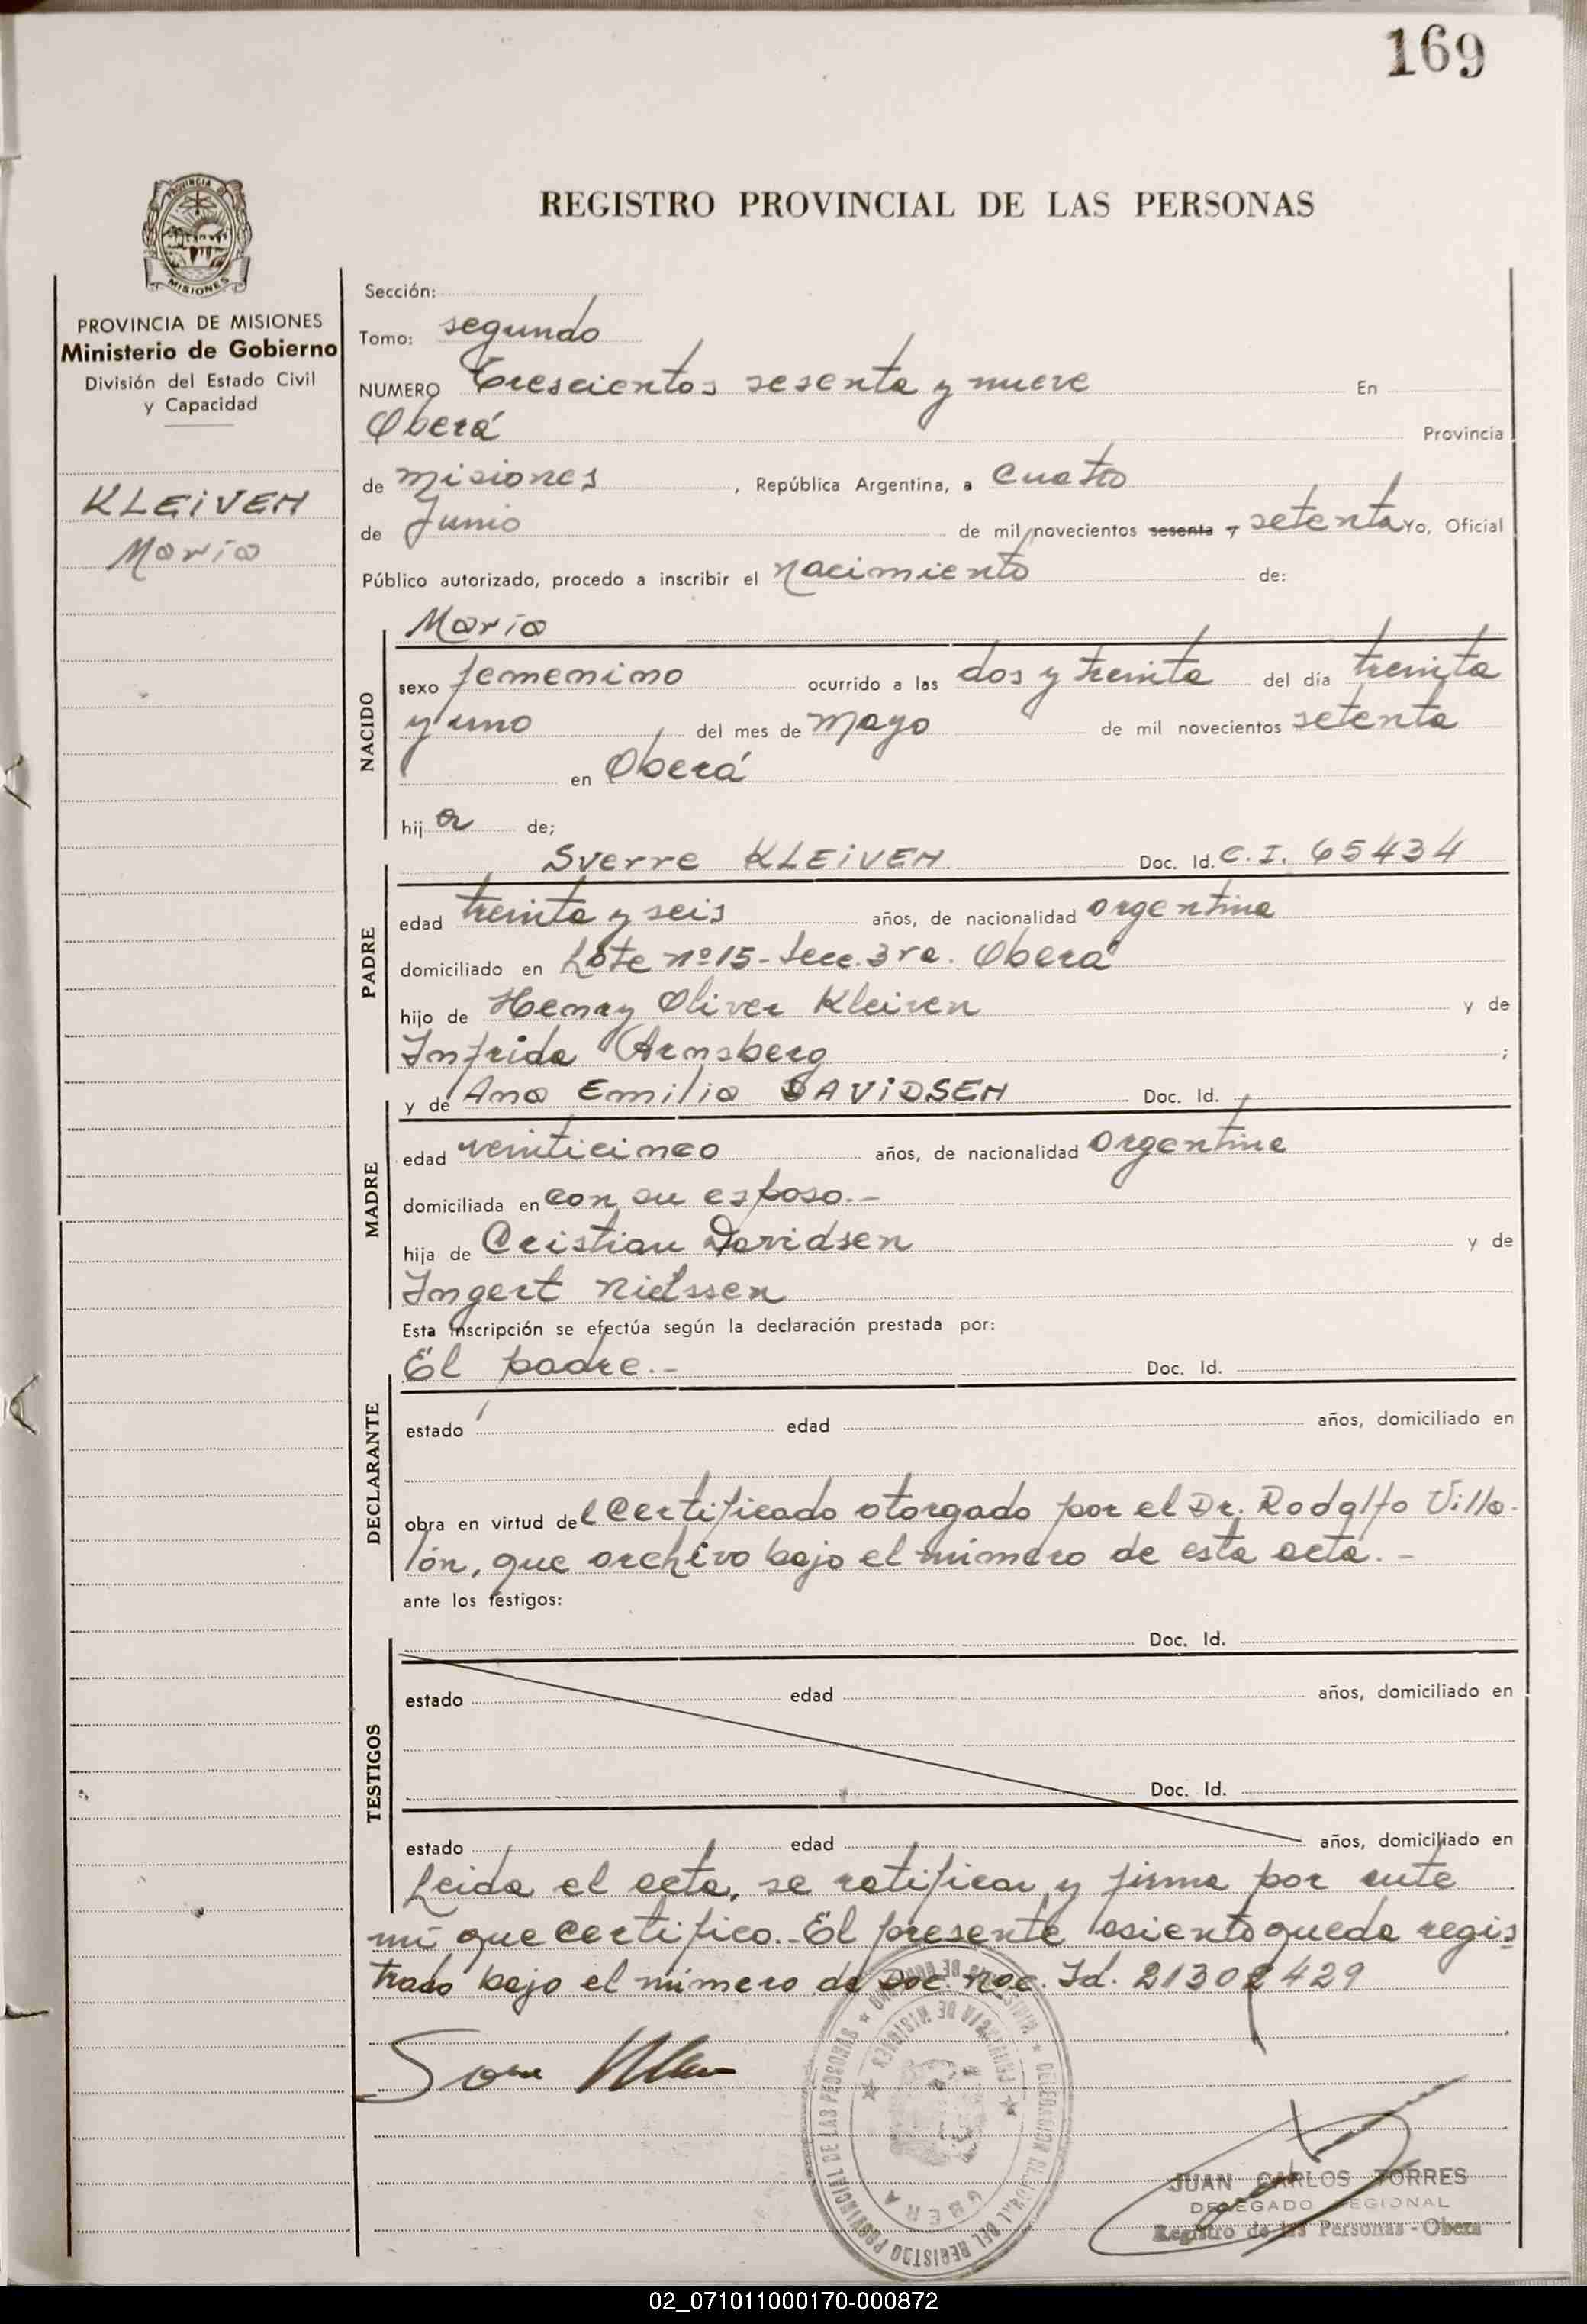 169
REGISTRO PROVINCIAL DE LAS PERSONAS
PROVINCIA DE MISIONES
MISIONES
PROVINCIA DE MISIONES
Ministerio de Gobierno
División del Estado Civil
y Capacidad
KLEIVEN
María
Sección:
Tomo: segundo
NUMERO Trescientos sesenta y nueve En
Oberá Provincia
de Misiones, República Argentina, a cuatro
de Junio de mil novecientos sesenta y setenta Yo, Oficial
Público autorizado, procedo a inscribir el nacimiento de:
NACIDO
María
sexo femenino ocurrido a las dos y treinta del día treinta
y uno del mes de Mayo de mil novecientos setenta
en Oberá
hij a de;
PADRE
Sverre KLEIVEN Doc. Id. C.I. 65434
edad treinta y seis años, de nacionalidad argentina
domiciliado en Lote nº 15 - Secc. 3ra. Oberá
hijo de Henry Oliver Kleiven y de
Infrida Arnsberg ;
MADRE
y de Ana Emilia DAVIDSEN Doc. Id.
edad veinticinco años, de nacionalidad argentina
domiciliada en con su esposo.-
hija de Cristian Davidsen y de
Ingert Nielssen
Esta inscripción se efectúa según la declaración prestada por:
DECLARANTE
El padre.- Doc. Id.
estado edad años, domiciliado en
obra en virtud del certificado otorgado por el Dr. Rodolfo Villa-
lón, que archivo bajo el número de esta acta.-
ante los testigos:
TESTIGOS
Doc. Id.
estado edad años, domiciliado en
Doc. Id.
estado edad años, domiciliado en
Leida el acta, se ratifica y firma por ante
mí que certifico.- El presente asiento queda regis
trado bajo el número de Doc. nac. Id. 21302429
DELEGACION REGIONAL DEL REGISTRO PROVINCIAL DE LAS PERSONAS
PROVINCIA DE MISIONES
OBERA
JUAN CARLOS TORRES
DELEGADO REGIONAL
Registro de las Personas - Obera
02_071011000170-000872